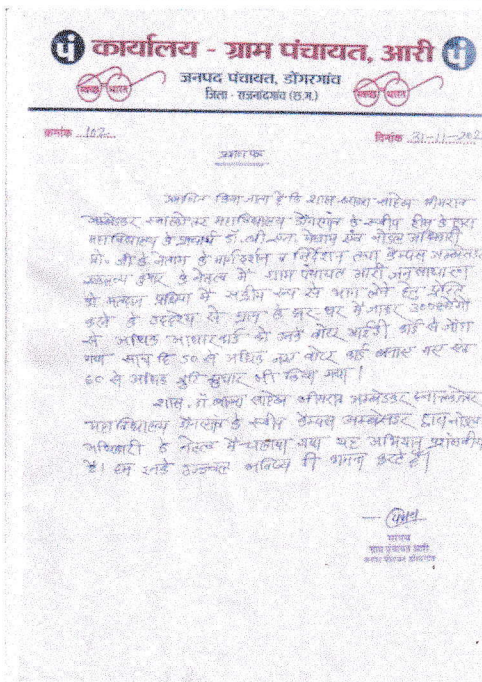 कार्यालय - ग्राम पंचायत, आरी
जनपद पंचायत, डोंगरगांव
जिला - राजनांदगांव (छ.ग.)
स्वच्छ भारत
स्वच्छ भारत
क्रमांक 102
दिनांक 31-11-202
प्रमाण पत्र
प्रमाणित किया जाता है कि शास. बाबा साहेब भीमराव
अम्बेडकर स्नातकोत्तर महाविद्यालय डोंगरगांव के स्वीप टीम के द्वारा
महाविद्यालय के प्राचार्य डॉ. नोडल अधिकारी
प्रो. के मार्गदर्शन व निर्देशन तथा केम्पस अम्बेसडर
कुमार के नेतृत्व में ग्राम पंचायत आरी जन साधारण
को मतदान प्रक्रिया में सक्रीय रूप से भाग लेने हेतु प्रेरित
करने के उद्देश्य से ग्राम के घर-घर में जाकर 300 लोगों
से अधिक आधार कार्ड को उनके वोटर आईडी कार्ड से जोड़ा
गया साथ हि 50 से अधिक नया वोटर कार्ड बनाए गए एवं
60 से अधिक त्रुटि सुधार भी किया गया।
शास. डॉ बाबा साहेब भीमराव अम्बेडकर स्नातकोत्तर
महाविद्यालय डोंगरगांव के स्वीप केम्पस अम्बेसडर द्वारा नोडल
अधिकारी के नेतृत्व में चलाया गया यह अभियान प्रशंसनीय
है। हम इनके उज्ज्वल भविष्य की कामना करते है।
सरपंच
ग्राम पंचायत आरी
जनपद पंचायत डोंगरगांव